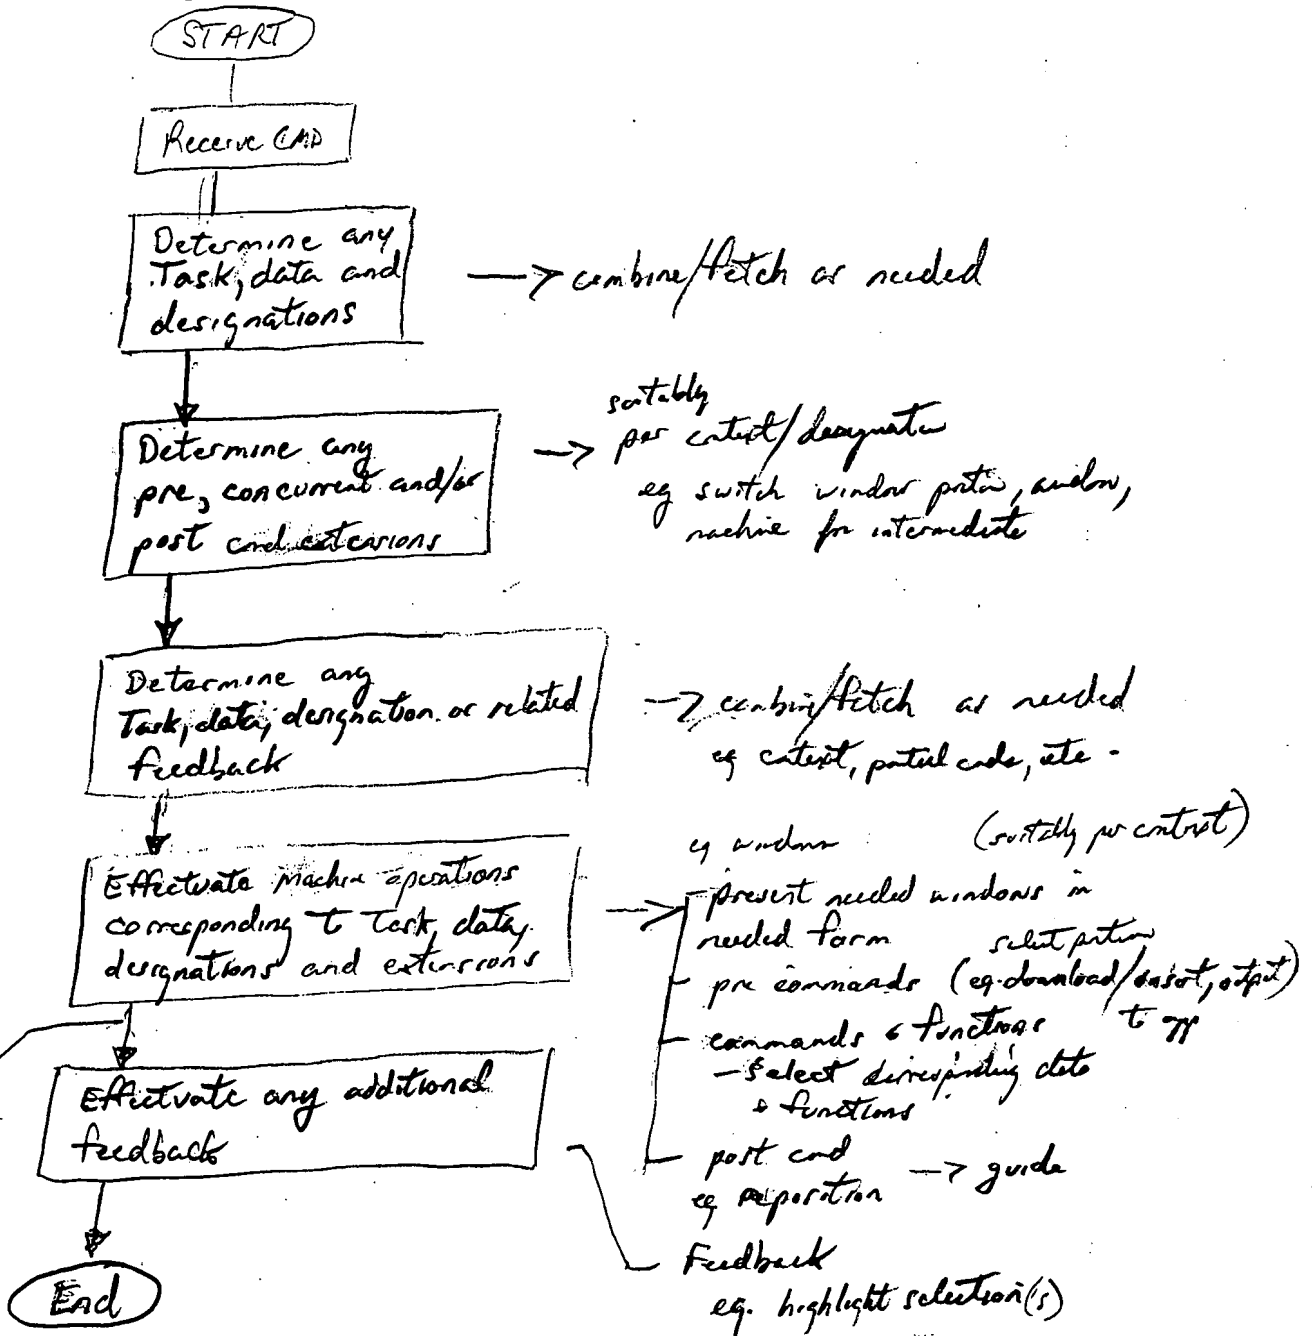 START
Receive CMD
Determine any
Task, data and
designations
→ combine/fetch as needed
Determine any
pre, concurrent and/or
post cmd extensions
→ suitably
per context/designation
eg switch window portion, window,
machine for intermediate
Determine any
Task, data, designation or related
feedback
→ combine/fetch as needed
eg context, partial cmds, etc.
Effectuate machine operations
corresponding to Task, data,
designations and extensions
→ eg windows (suitably per context)
- present needed windows in
needed form
select portion
- pre commands (eg. download/insert, output)
to app
- commands & functions
- select corresponding data
& functions
- post cmd
eg reposition → guide
Effectuate any additional
feedback
Feedback
eg. highlight selection(s)
End